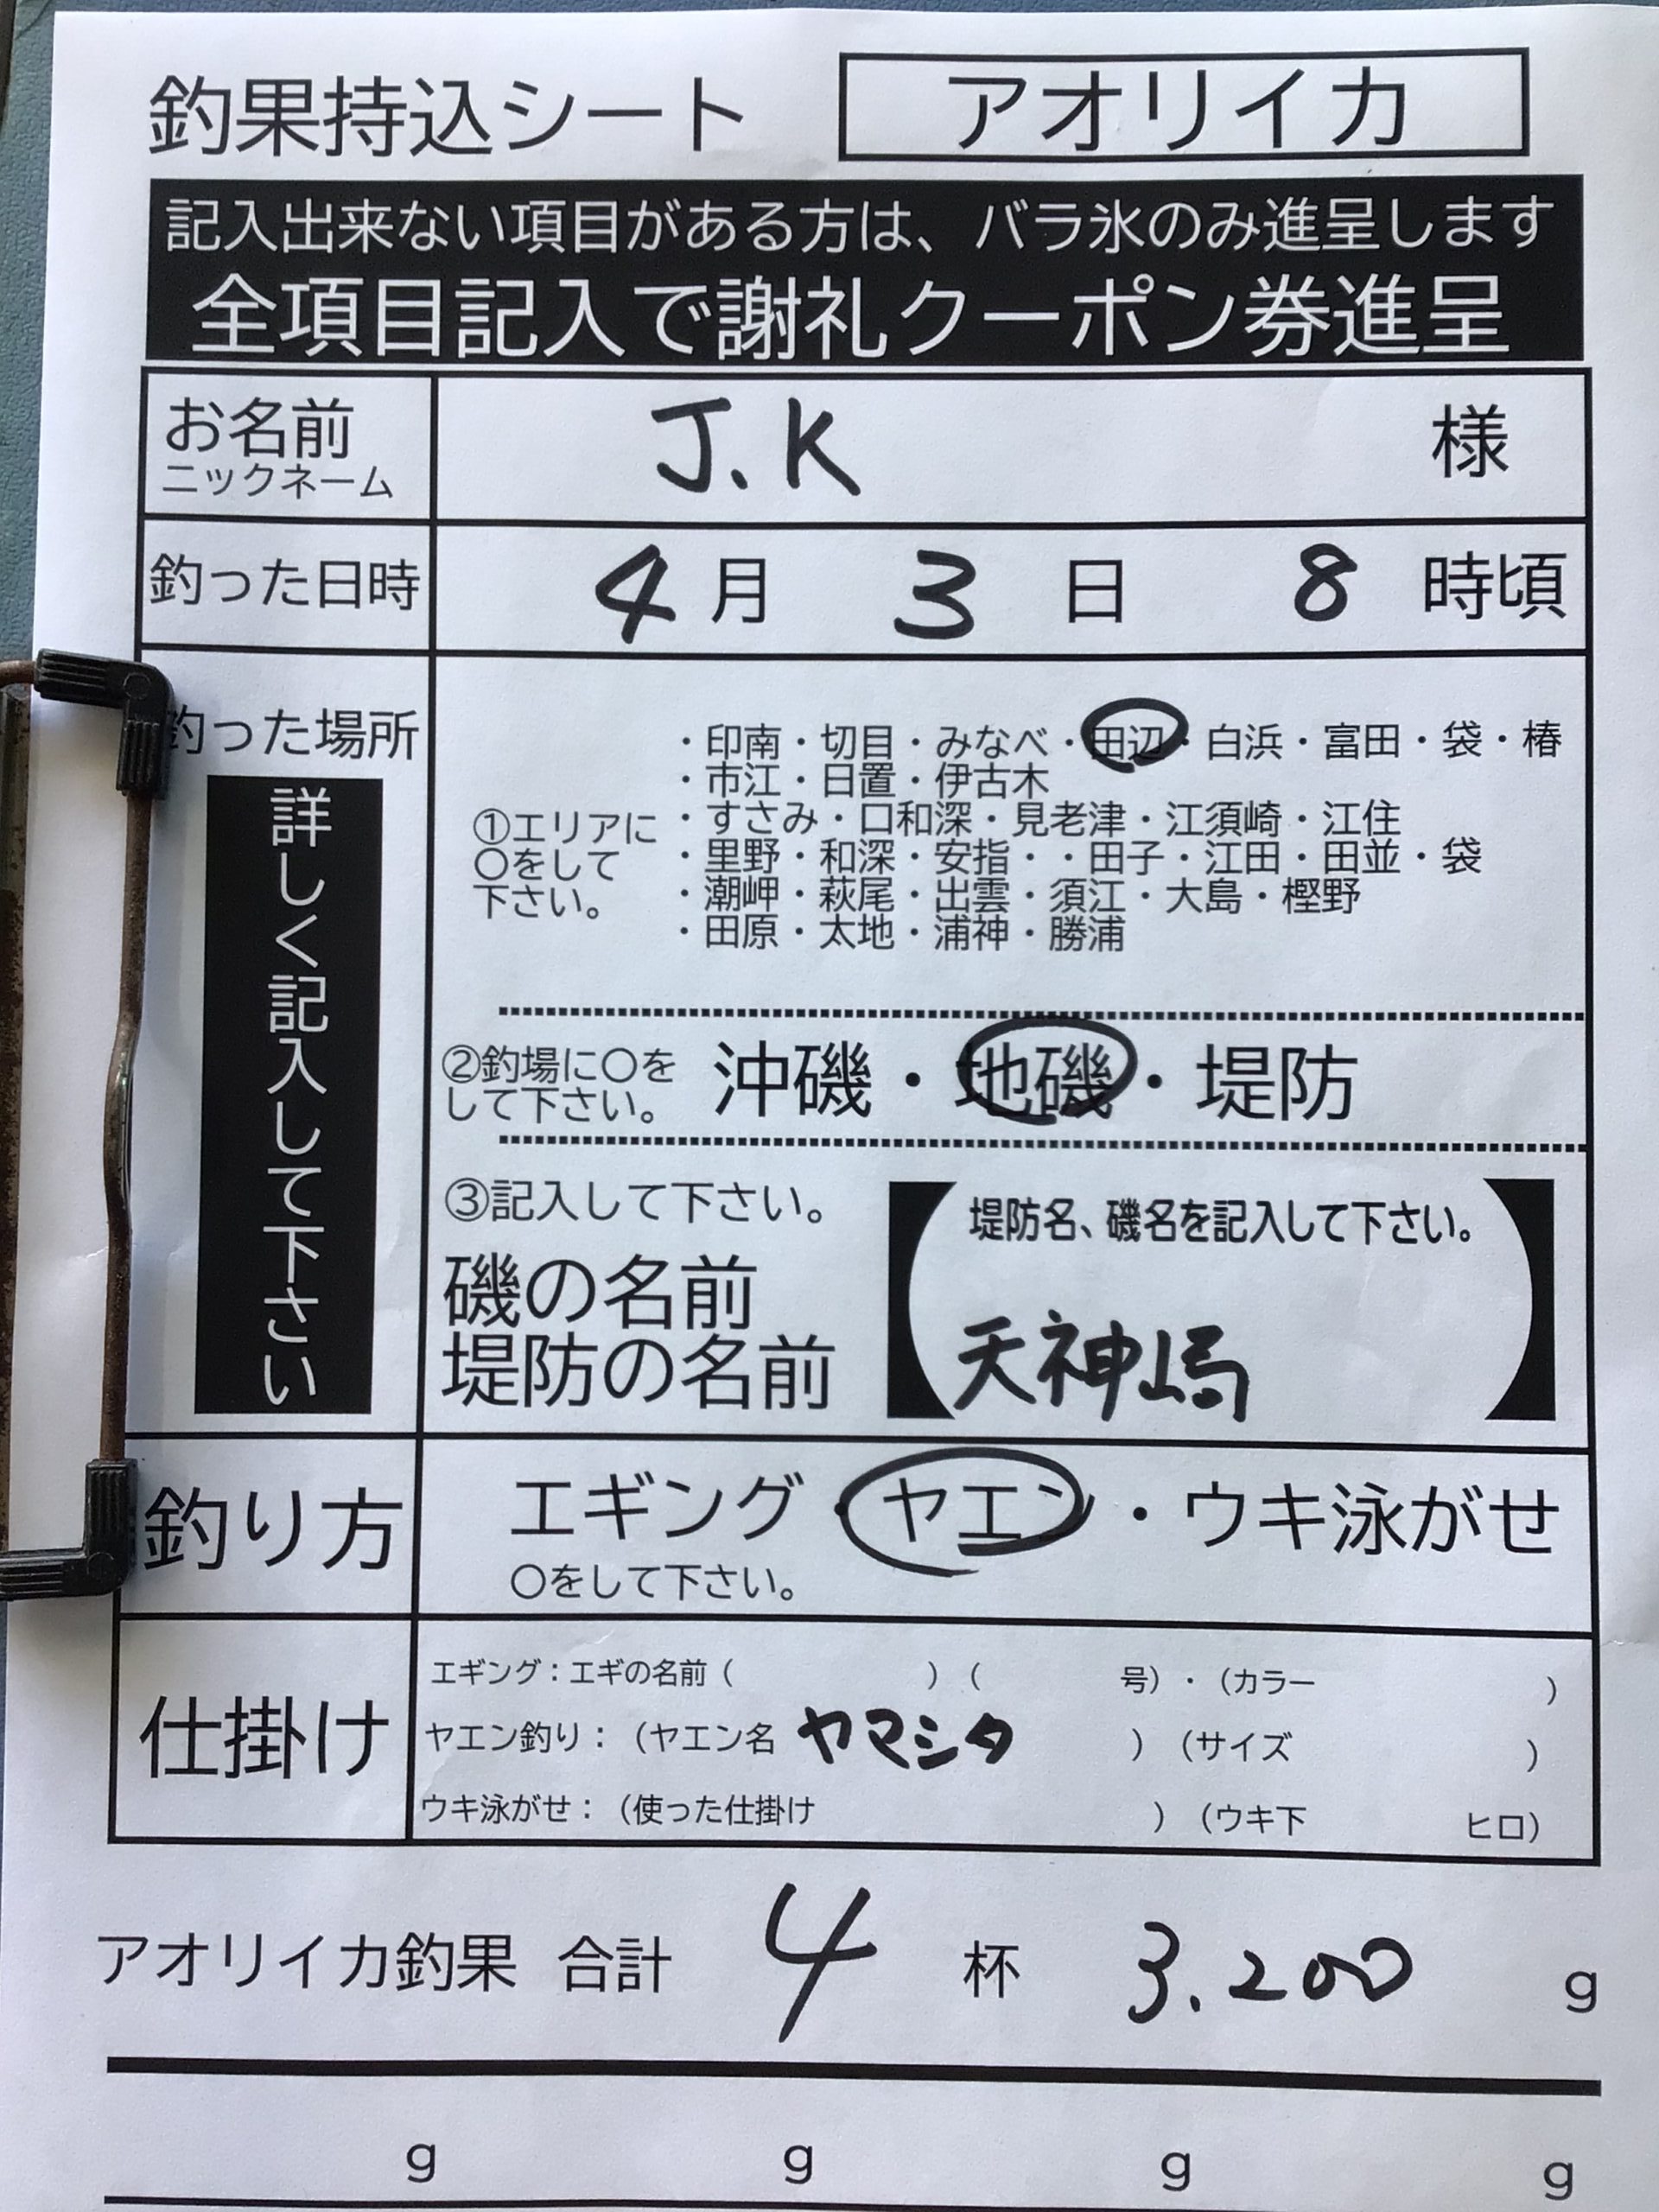 釣果持込シート アオリイカ
記入出来ない項目がある方は、バラ氷のみ進呈します
全項目記入で謝礼クーポン券進呈
お名前 J.K 様
ニックネーム
釣った日時 4月 3日 8時頃
釣った場所
詳しく記入して下さい
①エリアに
〇をして
下さい。
・印南・切目・みなべ・田辺・白浜・富田・袋・椿
・市江・日置・伊古木
・すさみ・口和深・見老津・江須崎・江住
・里野・和深・安指・・田子・江田・田並・袋
・潮岬・萩尾・出雲・須江・大島・樫野
・田原・太地・浦神・勝浦
②釣場に〇を
して下さい。
沖磯・地磯・堤防
③記入して下さい。
磯の名前
堤防の名前
堤防名、磯名を記入して下さい。
天神崎
釣り方 エギング・ヤエン・ウキ泳がせ
〇をして下さい。
仕掛け
エギング：エギの名前（ ）（ 号）・（カラー ）
ヤエン釣り：（ヤエン名 ヤマシタ ）（サイズ ）
ウキ泳がせ：（使った仕掛け ）（ウキ下 ヒロ）
アオリイカ釣果 合計 4 杯 3.200 g
g g g g